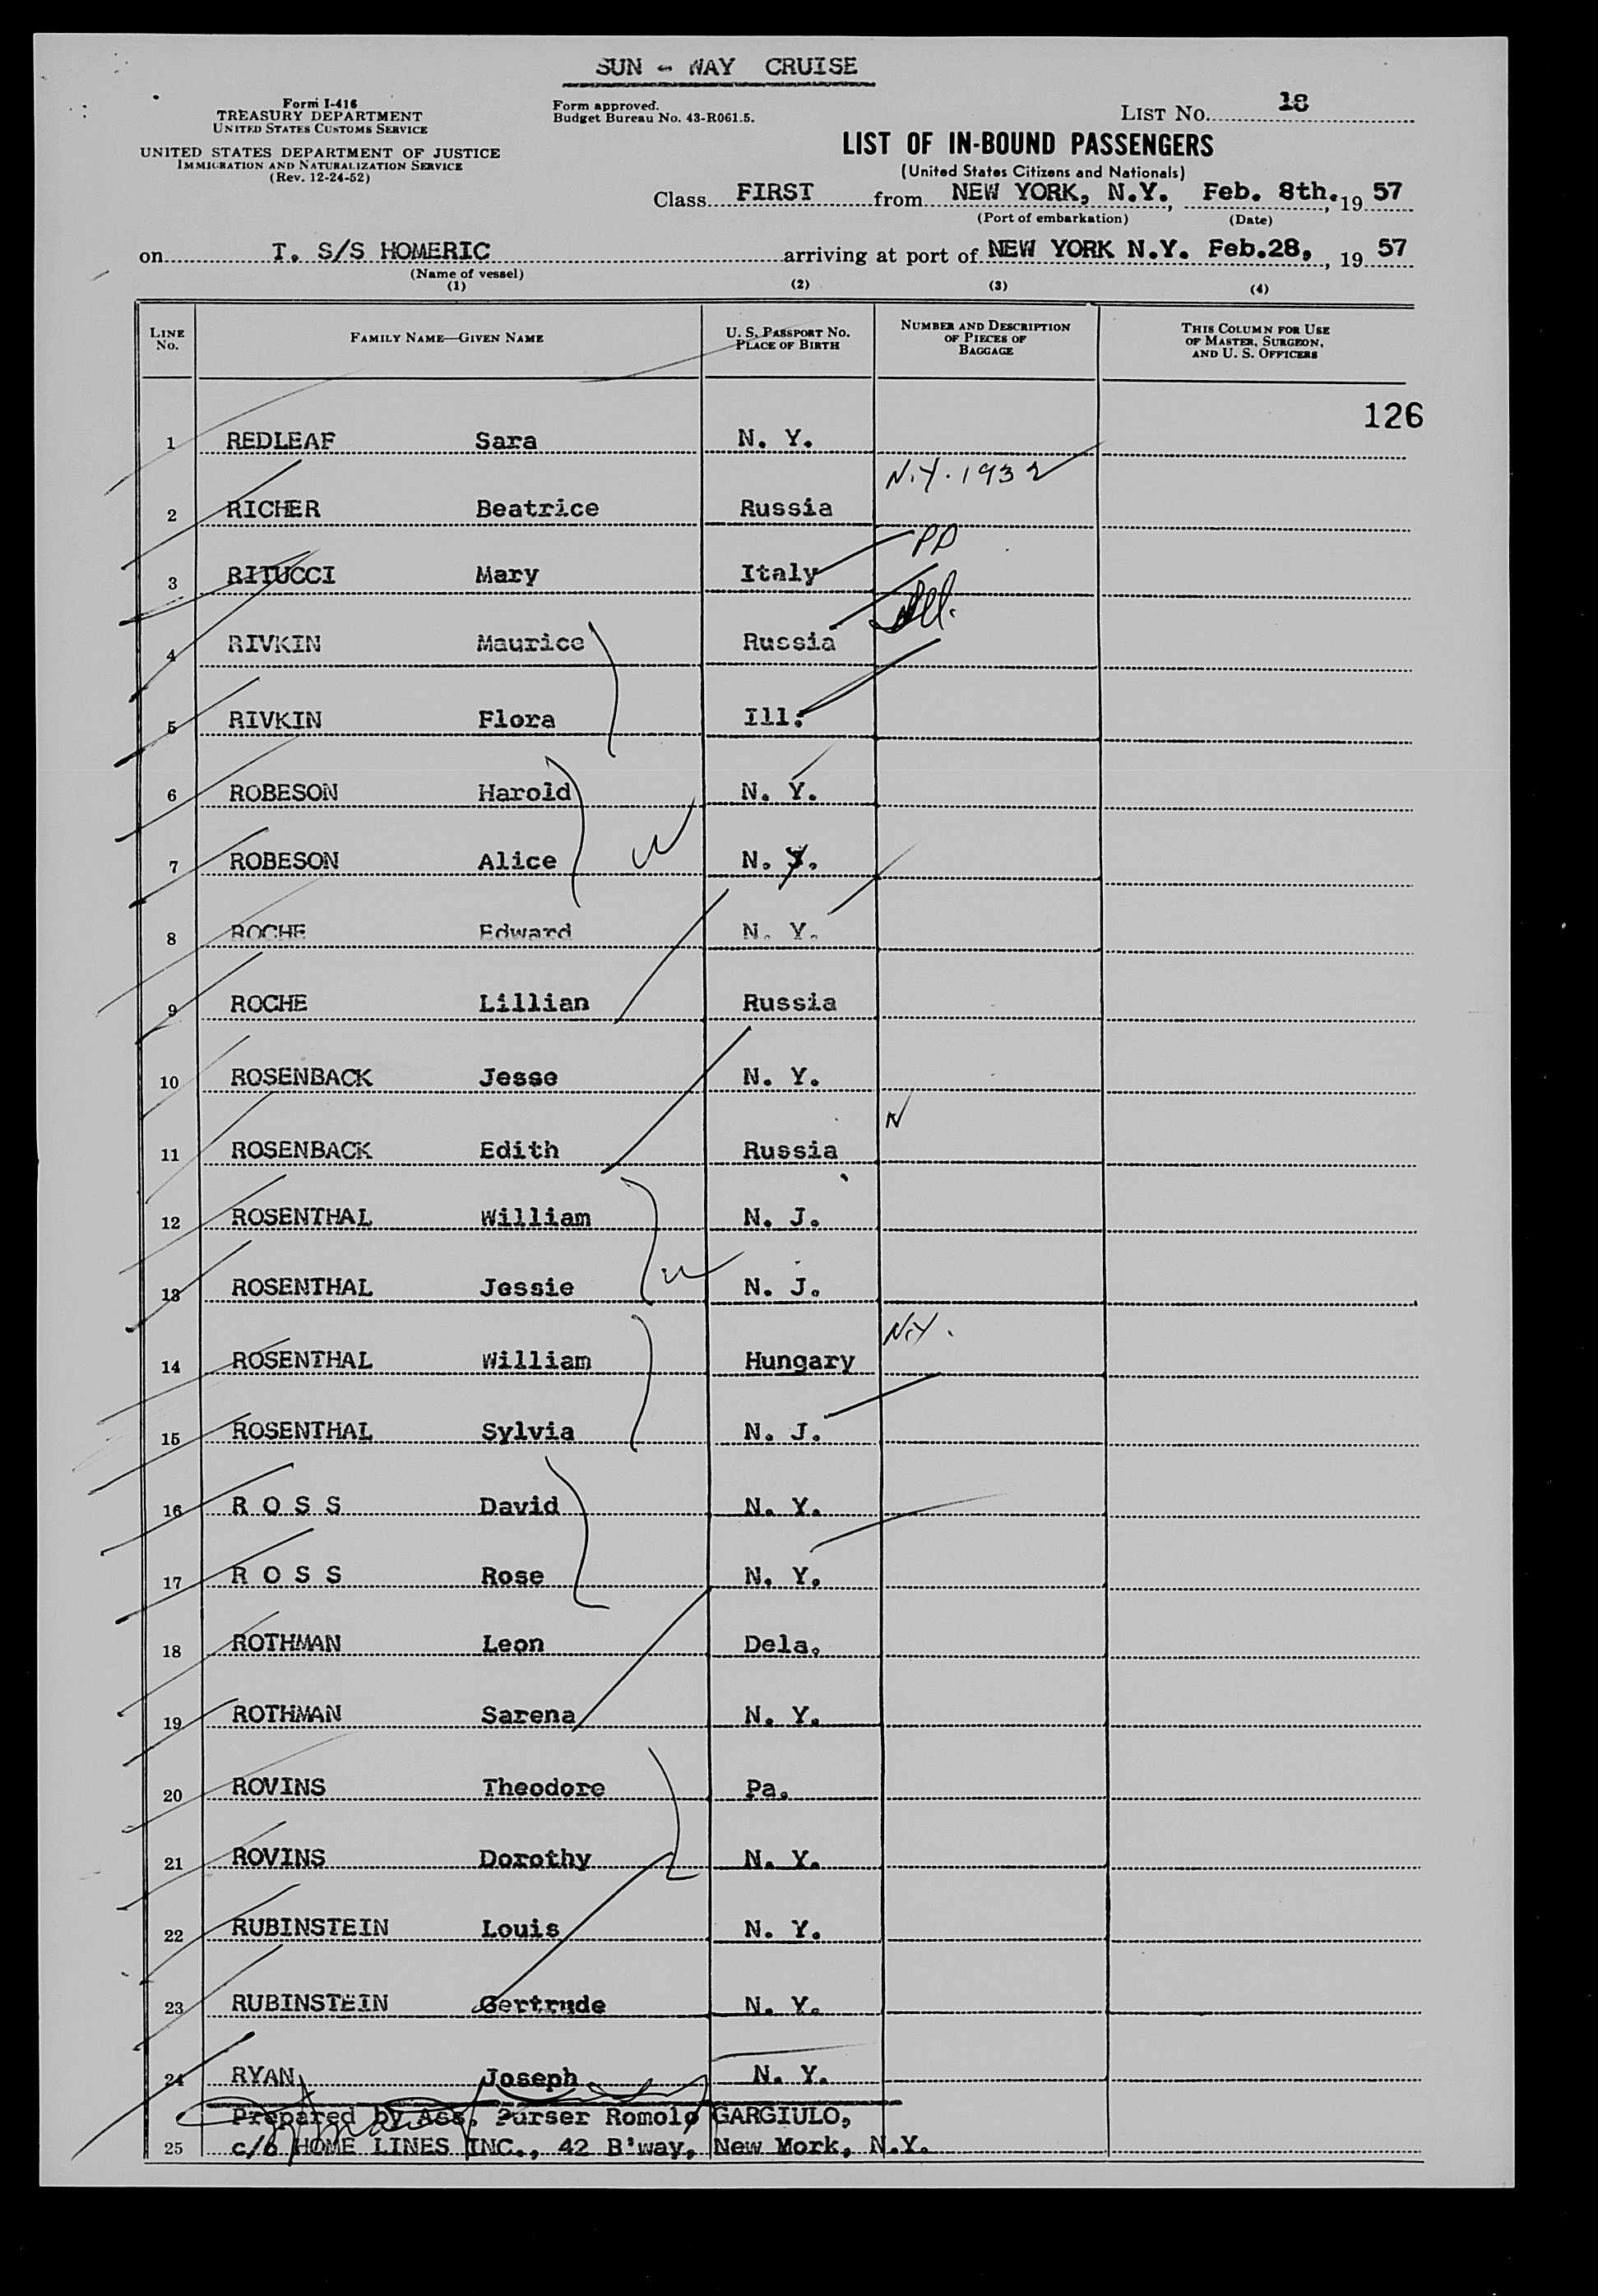 SUN - WAY CRUISE
Form I-416
TREASURY DEPARTMENT
UNITED STATES CUSTOMS SERVICE
UNITED STATES DEPARTMENT OF JUSTICE
IMMIGRATION AND NATURALIZATION SERVICE
(Rev. 12-24-52)
Form approved.
Budget Bureau No. 43-R061.5.
LIST NO. 18
LIST OF IN-BOUND PASSENGERS
(United States Citizens and Nationals)
Class FIRST from NEW YORK, N.Y., Feb. 8th., 19 57
(Port of embarkation) (Date)
on T. S/S HOMERIC arriving at port of NEW YORK N.Y. Feb.28, , 19 57
(Name of vessel)
(1) (2) (3) (4)
LINE NO. FAMILY NAME—GIVEN NAME U. S. PASSPORT NO. PLACE OF BIRTH NUMBER AND DESCRIPTION OF PIECES OF BAGGAGE THIS COLUMN FOR USE OF MASTER, SURGEON, AND U. S. OFFICERS
126
1 REDLEAF Sara N. Y.
N.Y. 1932
2 RICHER Beatrice Russia
PP
3 RITUCCI Mary Italy
4 RIVKIN Maurice Russia
5 RIVKIN Flora Ill.
6 ROBESON Harold N. Y.
7 ROBESON Alice N. Y.
8 ROCHE Edward N. Y.
9 ROCHE Lillian Russia
10 ROSENBACK Jesse N. Y.
N
11 ROSENBACK Edith Russia
12 ROSENTHAL William N. J.
13 ROSENTHAL Jessie N. J.
N.Y.
14 ROSENTHAL William Hungary
15 ROSENTHAL Sylvia N. J.
16 R O S S David N. Y.
17 R O S S Rose N. Y.
18 ROTHMAN Leon Dela.
19 ROTHMAN Sarena N. Y.
20 ROVINS Theodore Pa.
21 ROVINS Dorothy N. Y.
22 RUBINSTEIN Louis N. Y.
23 RUBINSTEIN Gertrude N. Y.
24 RYAN Joseph N. Y.
Prepared by Ass. Purser Romolo GARGIULO,
25 c/o HOME LINES INC., 42 B'way, New Mork, N.Y.